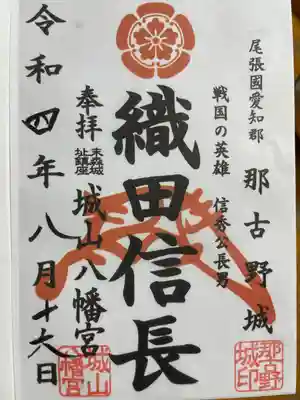 尾張國愛知郡
那古野城
戦国の英雄 信秀公長男
織田信長
奉拝
末森城
址鎮座
城山八幡宮
令和四年八月十六日
那古野
城印
城山
八幡宮